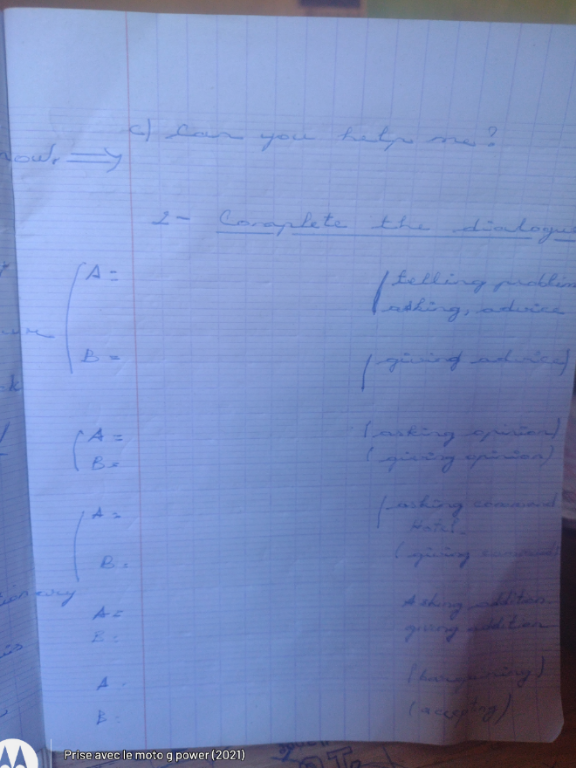 c) Can you help me?
now,
2- Complete the dialogue
A= (telling problem
asking, advice
B= (giving advice)
A= (asking opinion)
B= (giving opinion)
A= (asking command
B= (giving
A= Asking addition
B= giving addition
A. (bargaining)
B= (accepting)
Prise avec le moto g power (2021)